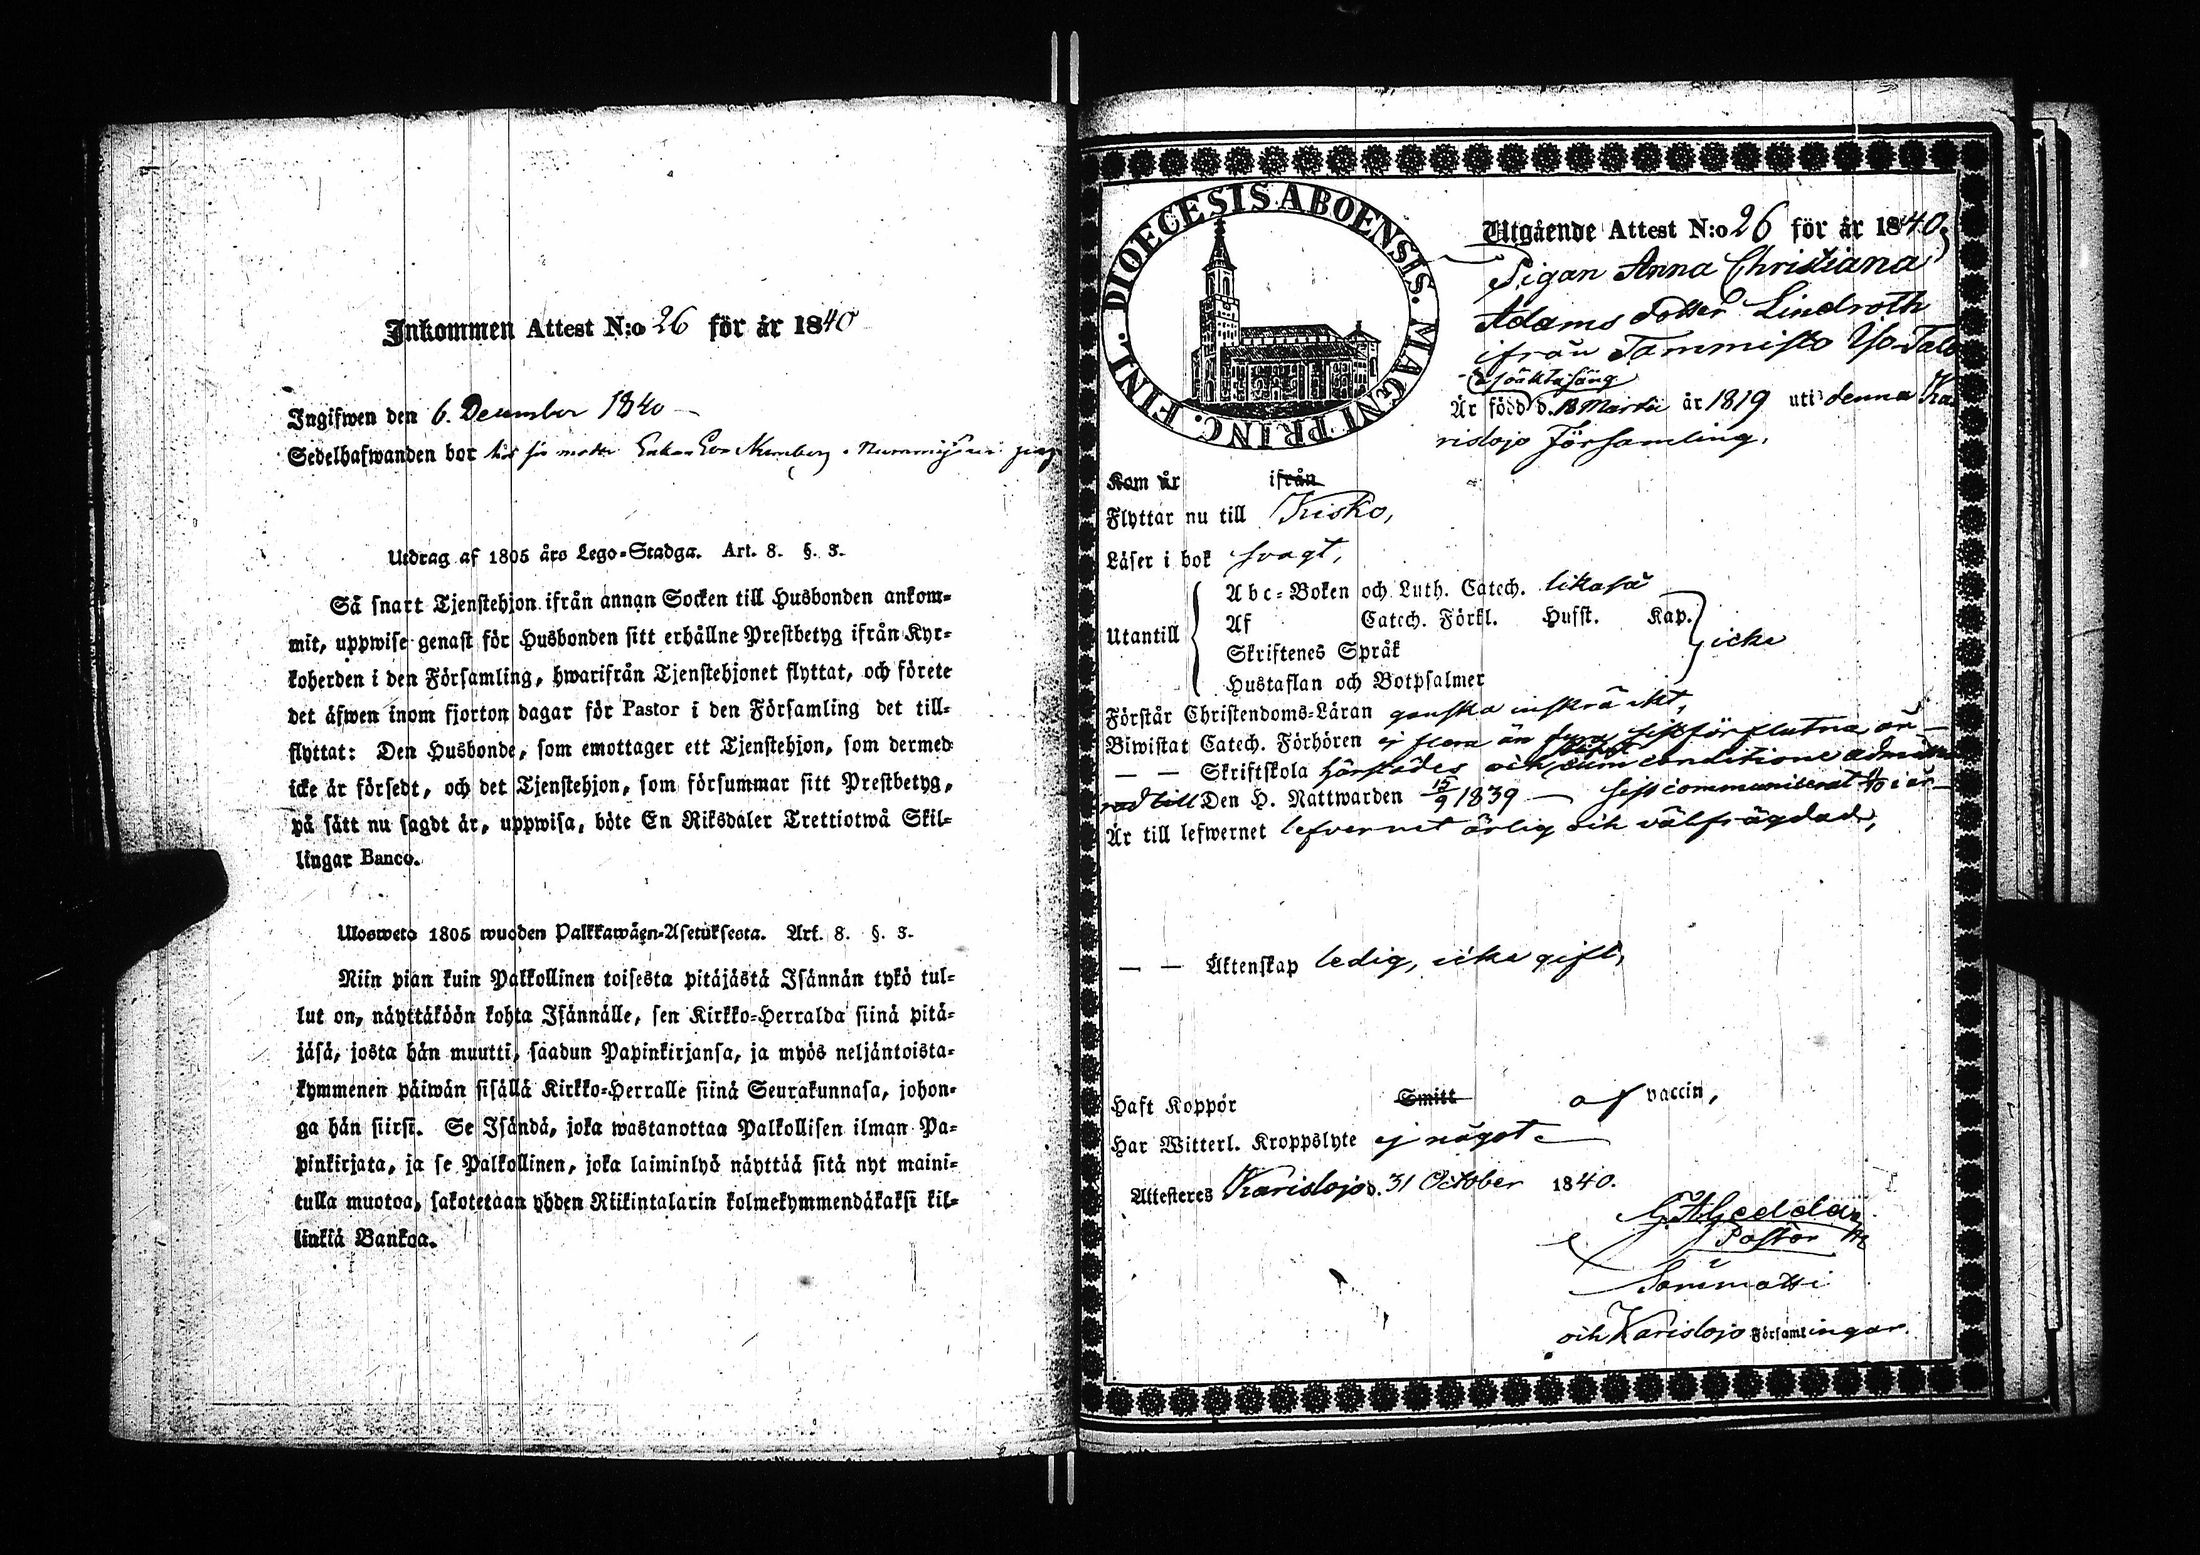 Inkommen Attest N:o 26 för år 1840
Ingifwen den 6. December 1840
Sedelhafwanden bor hos sin moder Enkan Eva
Utdrag af 1805 års Lego-Stadga. Art. 8. §. 3.
Så snart Tjenstehjon ifrån annan Socken till Husbonden ankom-
mit, uppwise genast för Husbonden sitt erhållne Prestbetyg ifrån Kyr-
koherden i den Församling, hwarifrån Tjenstehjonet flyttat, och förete
det äfwen inom fjorton dagar för Pastor i den Församling det till-
flyttat: Den Husbonde, som emottager ett Tjenstehjon, som dermed
icke är försedt, och det Tjenstehjon, som försummar sitt Prestbetyg,
på sätt nu sagdt är, uppwisa, böte En Riksdaler Trettiotwå Skil-
lingar Banco.
Ulosweto 1805 wuoden Palkkawäen-Asetuksesta. Art. 8. §. 3.
Niin pian kuin Palkollinen toisesta pitäjästä Isännän tykö tul-
lut on, näyttäköön kohta Isännälle, sen Kirkko-Herralda siinä pitä-
jäsä, josta hän muutti, saadun Papinkirjansa, ja myös neljäntoista-
kymmenen päiwän sisällä Kirkko-Herralle siinä Seurakunnasa, johon-
ga hän siirsi. Se Isändä, joka wastanottaa Palkollisen ilman Pa-
pinkirjata, ja se Palkollinen, joka laiminlyö näyttää sitä nyt maini-
tulla muotoa, sakotetaan yhden Riikintalarin kolmekymmendäkaksi kil-
linkiä Bankoa.
DIOECESIS ABOENSIS. MAGNI PRINC. FINL.
Utgående Attest N:o 26 för år 1840,
Pigan Anna Christiana
Adams dotter Lindroth
ifrån Tammisto Iso-Talo
Är född d. 13 Martii år 1819 uti denna Ka
rislojo Församling.
Kom år ifrån
Flyttar nu till Kisko,
Läser i bok svagt,
Abc-Boken och Luth. Catech. likaså
Utantill Af Catech. Förkl. Husst. Kap.
Skriftenes Språk icke
Hustaflan och Botpsalmer
Förstår Christendoms-Läran ganska inskränkt,
Biwistat Catech. Förhören ej flera än sistförflutna år
— — Skriftskola härstädes och cum conditione admitte
rad till Den H. Nattwarden 15/9 1839 — sist communicerat i år
Är till lefwernet lefvernet ärlig och välfrägdad,
— — Äktenskap ledig, icke gift,
Haft Koppor Smitt af vaccin,
Har Witterl. Kroppslyte ej något
Attesteras Karislojo d. 31 October 1840.
G. A. Gedda
Pastor
Sammatti
och Karislojo Församlingar.